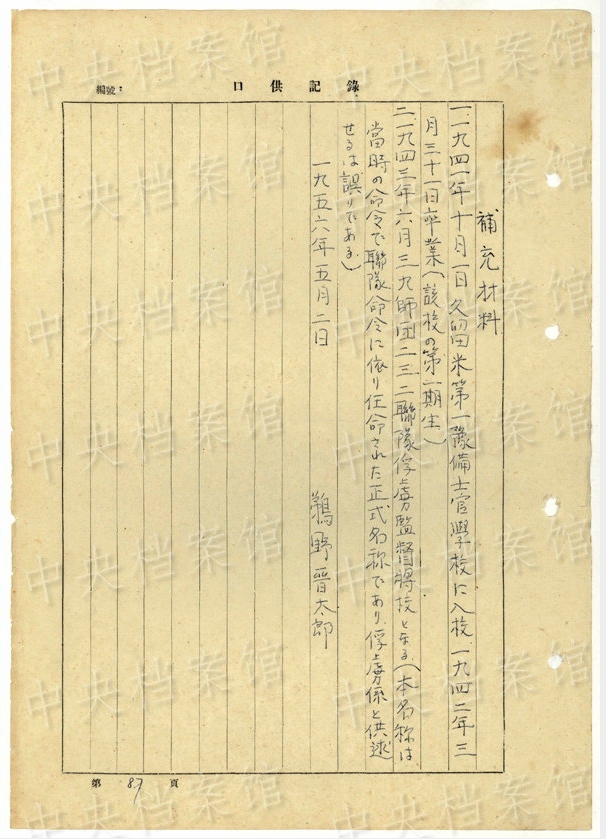 口供記錄
編號：
補充材料
一、一九四一年十月一日久留米第一豫備士官學校に入校、一九四二年三
月三十一日卒業（該校の第一期生）
二、一九四三年六月三九師団二三二聯隊俘虜監督将校となる（本名称は
當時の命令で聯隊命令に依り任命された正式名称であり、俘虜係と供述
せるは誤りである）
一九五六年五月二日
鵜野晋太郎
第 87 頁
中央档案馆